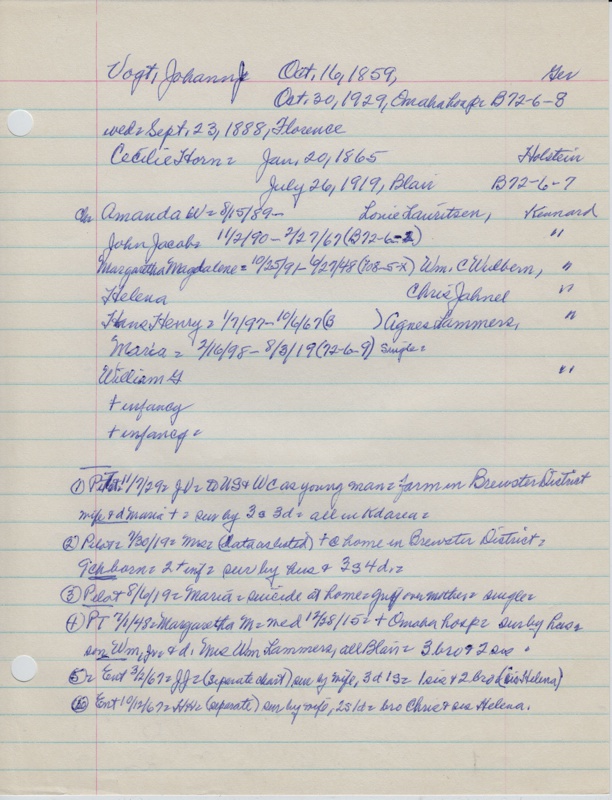 Vogt, Johann J Oct. 16, 1859, Ger
Oct. 30, 1929, Omaha hosp = B72-6-8
wed = Sept. 23, 1888, Florence
Cecilie Horn = Jan. 20, 1865 Holstein
July 26, 1919, Blair B72-6-7
Ch= Amanda W = 8/15/89- Louie Lauritsen, Kennard
John Jacob = 11/2/90 - 2/27/67 (B72-6-2) "
Margaretha Magdalene = 10/25/91 - 6/27/48 (708-5-X) Wm. C Wulbern, "
Helena Chris Jahnel "
Hans Henry = 1/7/97 - 10/6/67 (B ) Agnes Lammers, "
Maria = 2/16/98 - 8/3/19 (72-6-9) single =
William G "
+ infancy
+ infancy =
① Pilot 11/7/29 = JV = to US & WC as young man = farm in Brewster District
wife & d Maria + = sur by 3s 3d = all in K d area =
② Pilot = 7/30/19 = Mrs = (data as listed) + @ home in Brewster District =
9 ch born = 2 + inf = sur by hus & 3s 4d. =
③ Pilot 8/6/19 = Maria = suicide at home = grief over mother = single =
④ PT 7/1/48 = Margaretha M = med 12/28/15 = + Omaha hosp = sur by hus =
son Wm, Jr = & d. Mrs Wm Lammers, all Blair = 3 bro & 2 sis
⑤ = Ent 3/2/67 = JJ = (separate chart) sur by wife, 3d 1s = 1 sis & 2 bro (sis Helena)
⑥ Ent 10/12/67 = HH = (separate) sur by wife, 2s 1d = bro Chris & sis Helena.